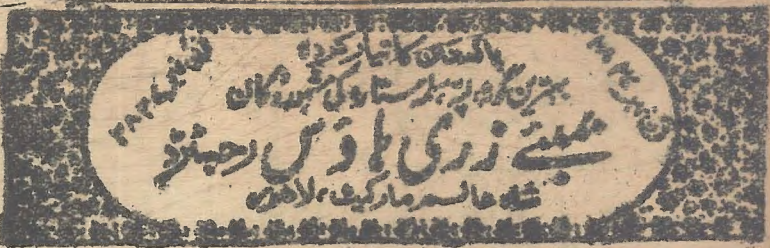 پاکستان کا تیار کردہ
بہترین گوٹہ ستارہ کی مشہور دکان
بمبئے زری ہاؤس رجسٹرڈ
شاہ عالم مارکیٹ، لاہور
فون نمبر
فون نمبر